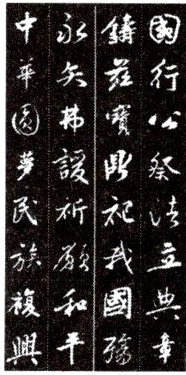 國行公祭法立典章
鑄茲寶鼎祀我國殤
永矢弗諼祈願和平
中華圓夢民族複興